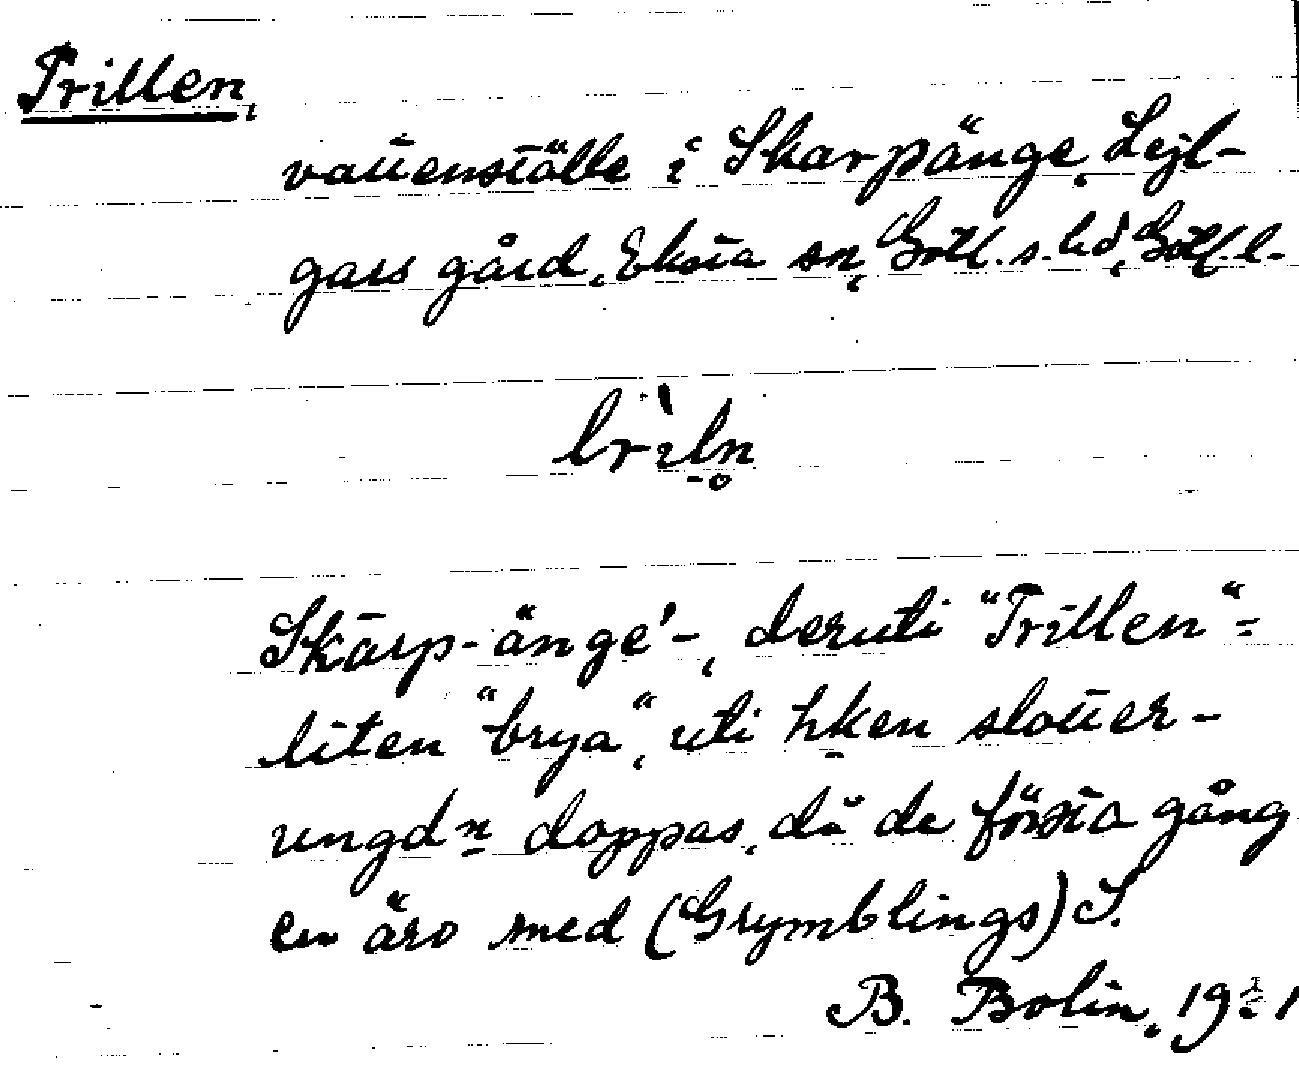 Trillen,
vattenställe i Skarpänge, Lejl-
gars gård, Eksta sn, Gotl. s. hd, Gotl. l.
trìln̥
Skarp-änge'-, deruti "Trillen"=
liten "brya", uti hken slotter-
ungdn doppas, då de första gång
en äro med (Grymblings) S.
B. Bolin, 1921